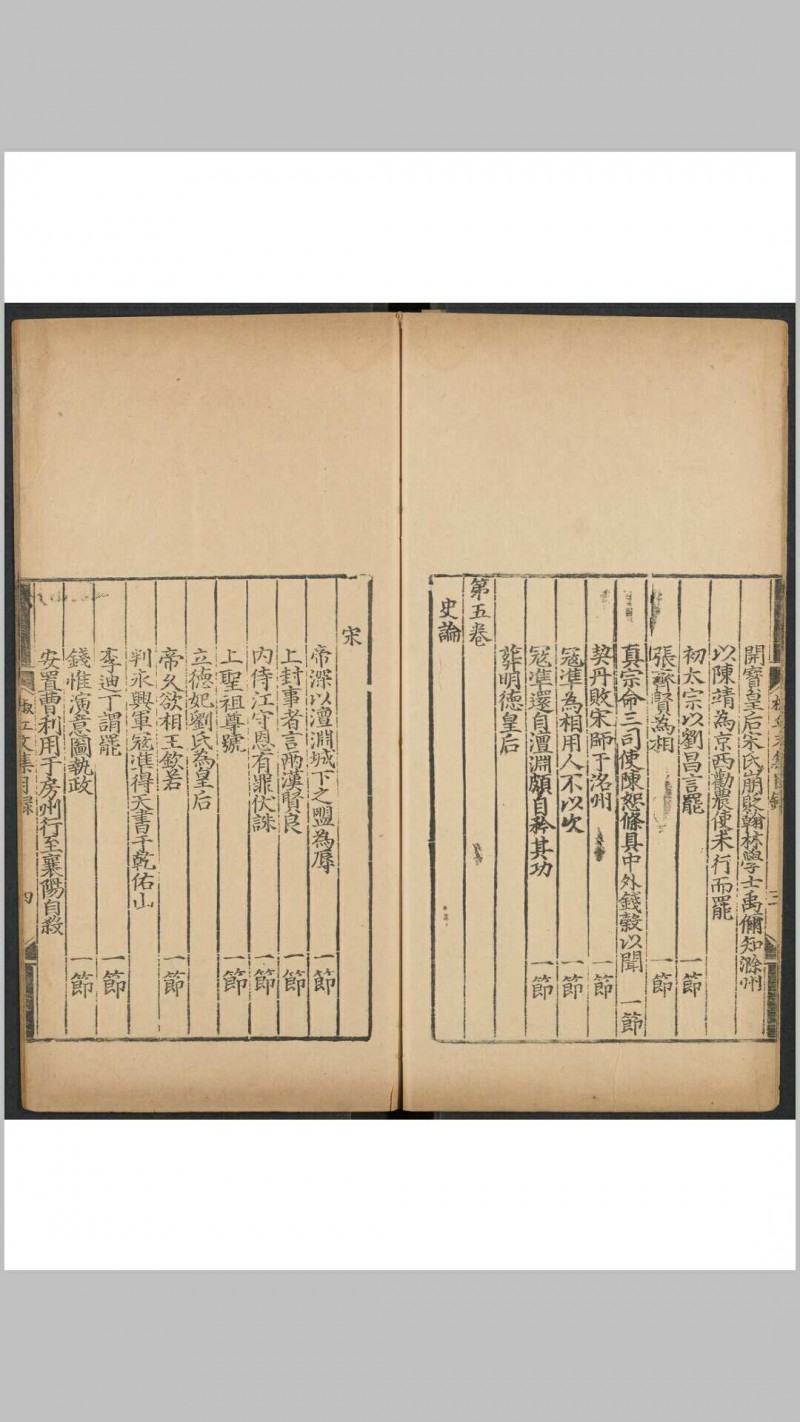 開寳皇后宋氏崩貶翰林學士禹偁知滁州
以陳靖為京西勸農使未行而罷
初太宗以劉昌言罷 一節
張齊賢為相 一節
真宗命三司使陳恕條具中外錢穀以聞 一節
契丹敗宋師于洺州 一節
冦準為相用人不以次 一節
冦準還自澶淵頗自矜其功 一節
葬明德皇后
第五卷
史論
宋
帝深以澶淵城下之盟為辱 一節
上封事者言兩漢賢良 一節
内侍江守恩有罪伏誅 一節
上聖祖尊號 一節
立德妃劉氏為皇后
帝久欲相王欽若 一節
判永興軍冦準得天書于乾佑山
李迪丁謂罷 一節
錢惟演意圖執政 一節
安置曹利用于房州行至襄陽自殺
文集目錄 四